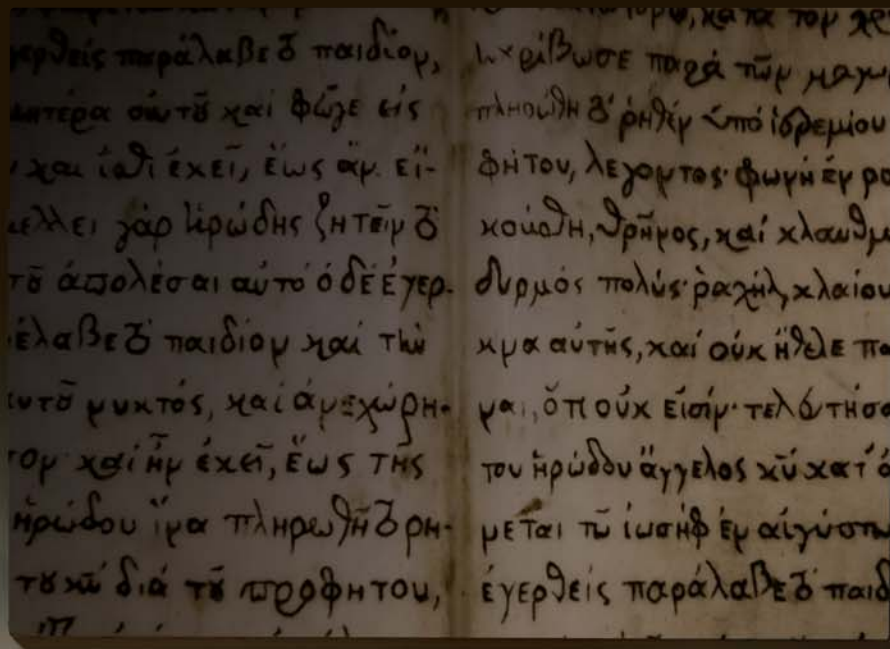 γερθείς παράλαβε τὸ παιδίον,
μητέρα αὐτοῦ καί φεῦγε εἰς
καί ἴσθι ἐκεῖ, ἕως ἄν εἴ-
μέλλει γάρ ἡρώδης ζητεῖν τὸ
τοῦ ἀπολέσαι αὐτό ὁ δέ ἐγερ-
έλαβε τὸ παιδίον καί τήν
αυτοῦ νυκτός, καί ἀνεχώρη-
τον καί ἦν ἐκεῖ, ἕως τῆς
ἡρώδου ἵνα πληρωθῆ τὸ ρη-
τοῦ κῦ διά τοῦ προφήτου,
κατά τον χρ
ἠκρίβωσε παρά τῶν μαγω
πληρώθη τὸ ῥηθέν ὑπό ἱερεμίου
φήτου, λέγοντος· φωνή ἐν ρα
κούσθη, θρῆνος, καί κλαυθμ
δυρμός πολύς· ῥαχήλ, κλαίου
κνα αὐτῆς, καί οὐκ ἤθελε πα
ναι, ὅτι οὐκ εἰσίν· τελευτήσα
του ἡρώδου ἄγγελος κῦ κατ' ὄ
νεται τῶ ἰωσήφ ἐν αἰγύπτω
ἐγερθείς παράλαβε τὸ παιδ